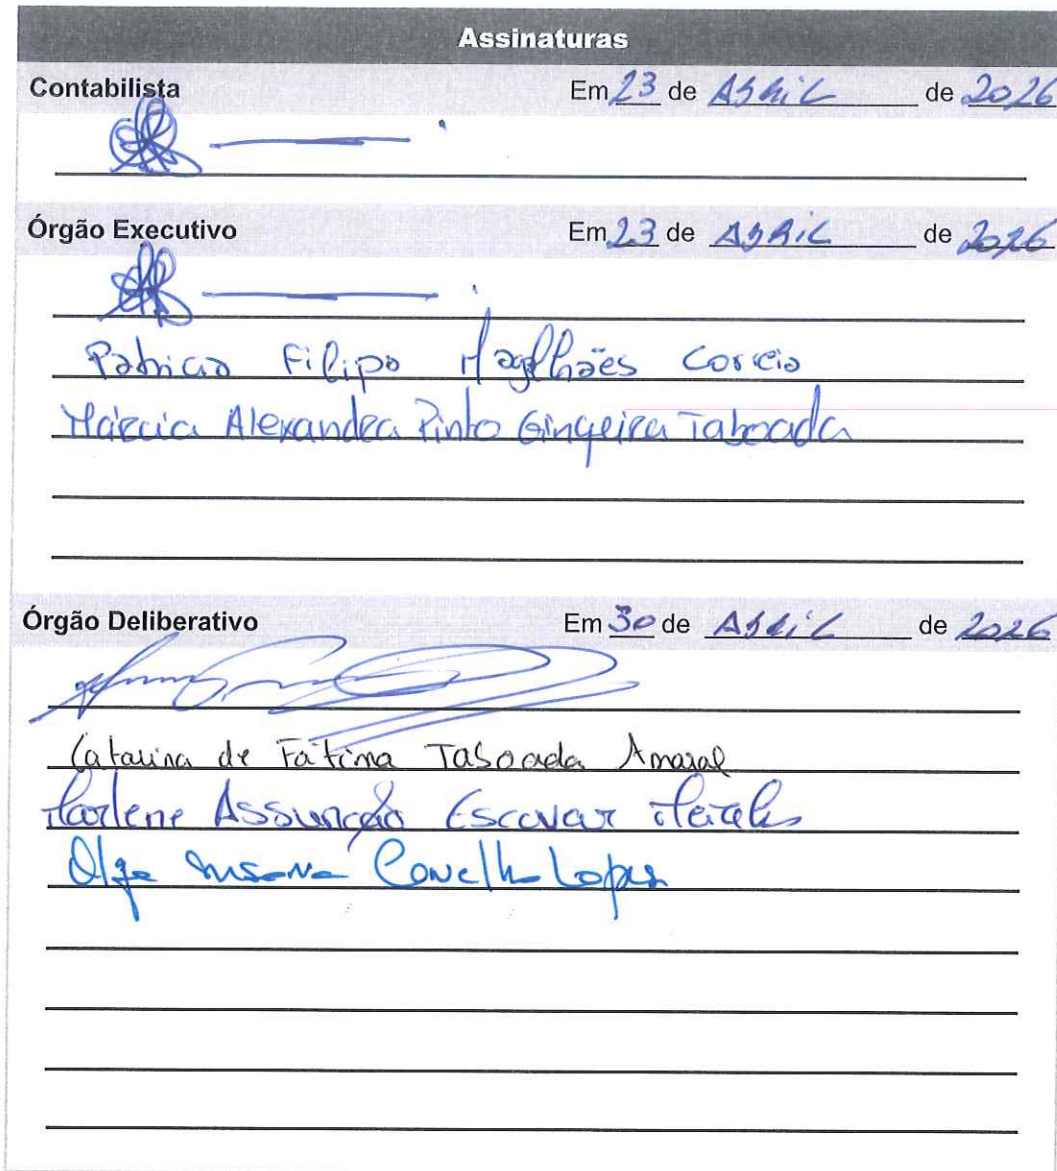 Assinaturas
Contabilista Em 23 de ABRIL de 2026
Órgão Executivo Em 23 de ABRIL de 2026
Patricia Filipa Magalhães Correia
Márcia Alexandra Pinto Gingeira Taboada
Órgão Deliberativo Em 30 de ABRIL de 2026
Catarina de Fátima Taboada Amaral
Marlene Assunção Escovar
Olga Susana Lopes